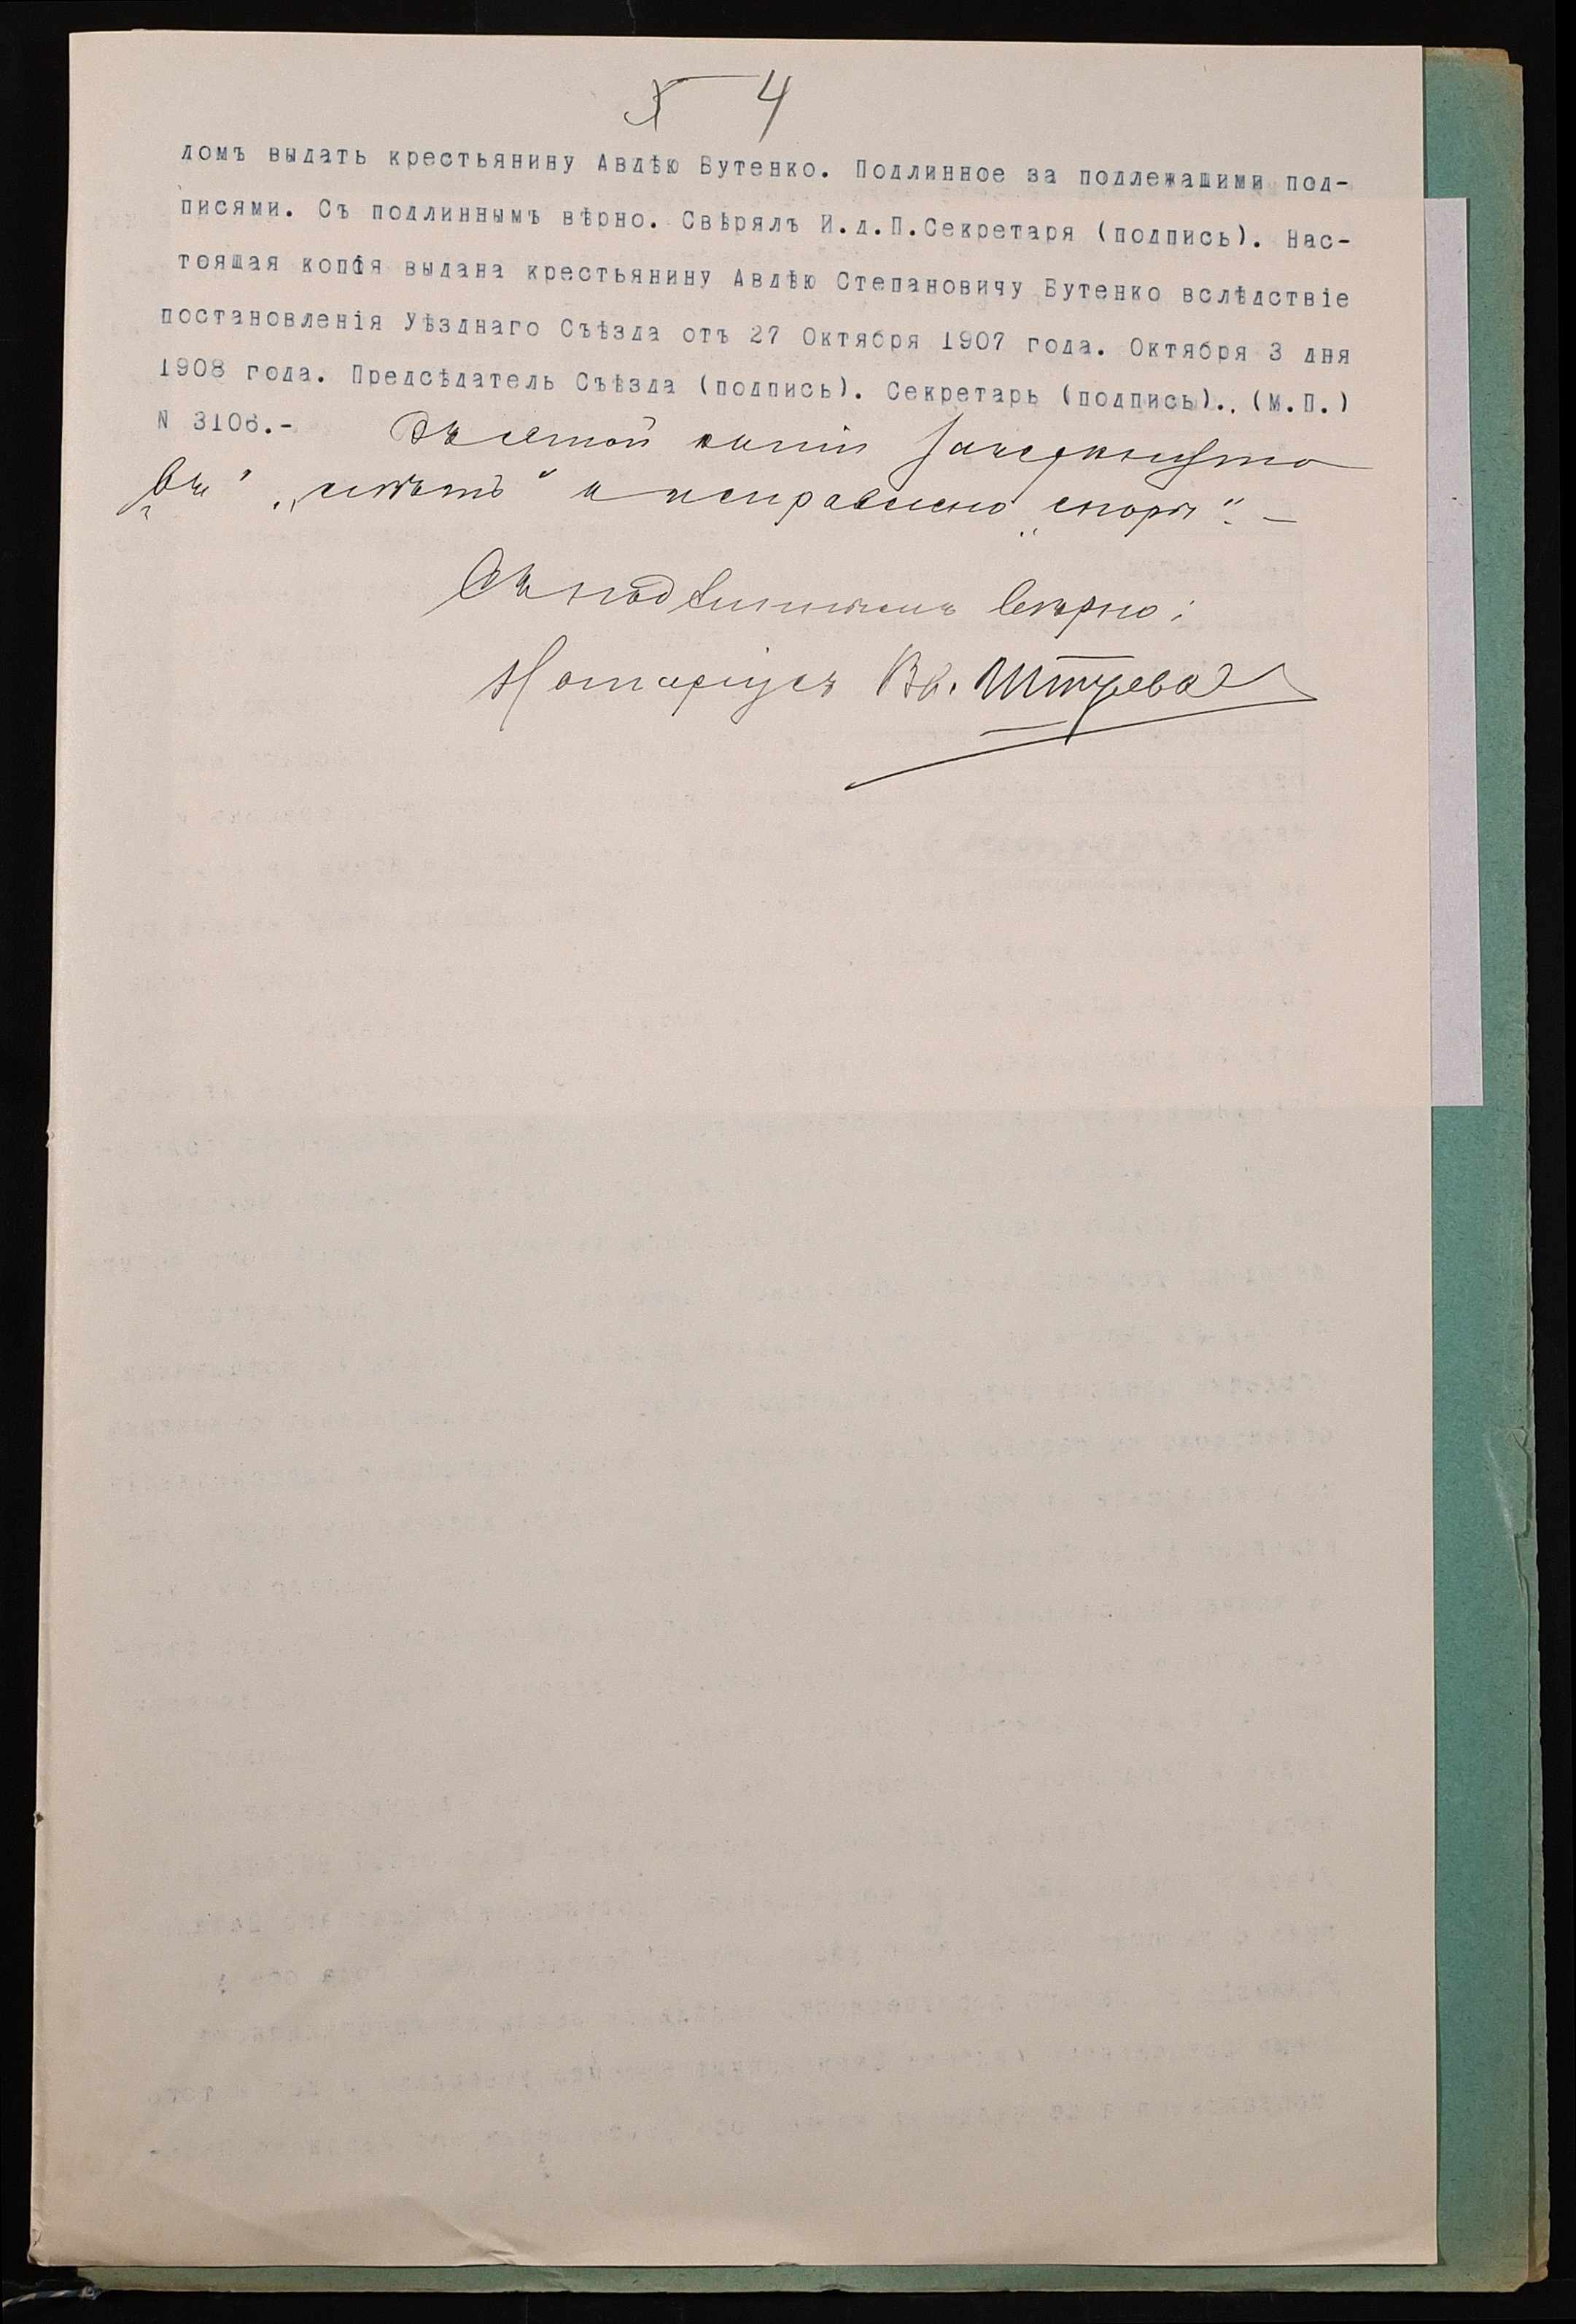 4
ломъ выдать крестьянину Авдѣю Бутенко. Подлинное за подлежащими под-
писями. Съ подлиннымъ вѣрно. Свѣрялъ И.д.П.Секретаря (подпись). Нас-
тоящая копія выдана крестьянину Авдѣю Степановичу Бутенко вслѣдствіе
постановленія Уѣзднаго Съѣзда отъ 27 Октября 1907 года. Октября 3 дня
1908 года. Предсѣдатель Съѣзда (подпись). Секретарь (подпись).. (М.П.)
N 3106.- Въ этой копіи зачеркнуто
и исправлено „споръ“. –
Съ подлиннымъ вѣрно:
Нотаріусъ Вл.